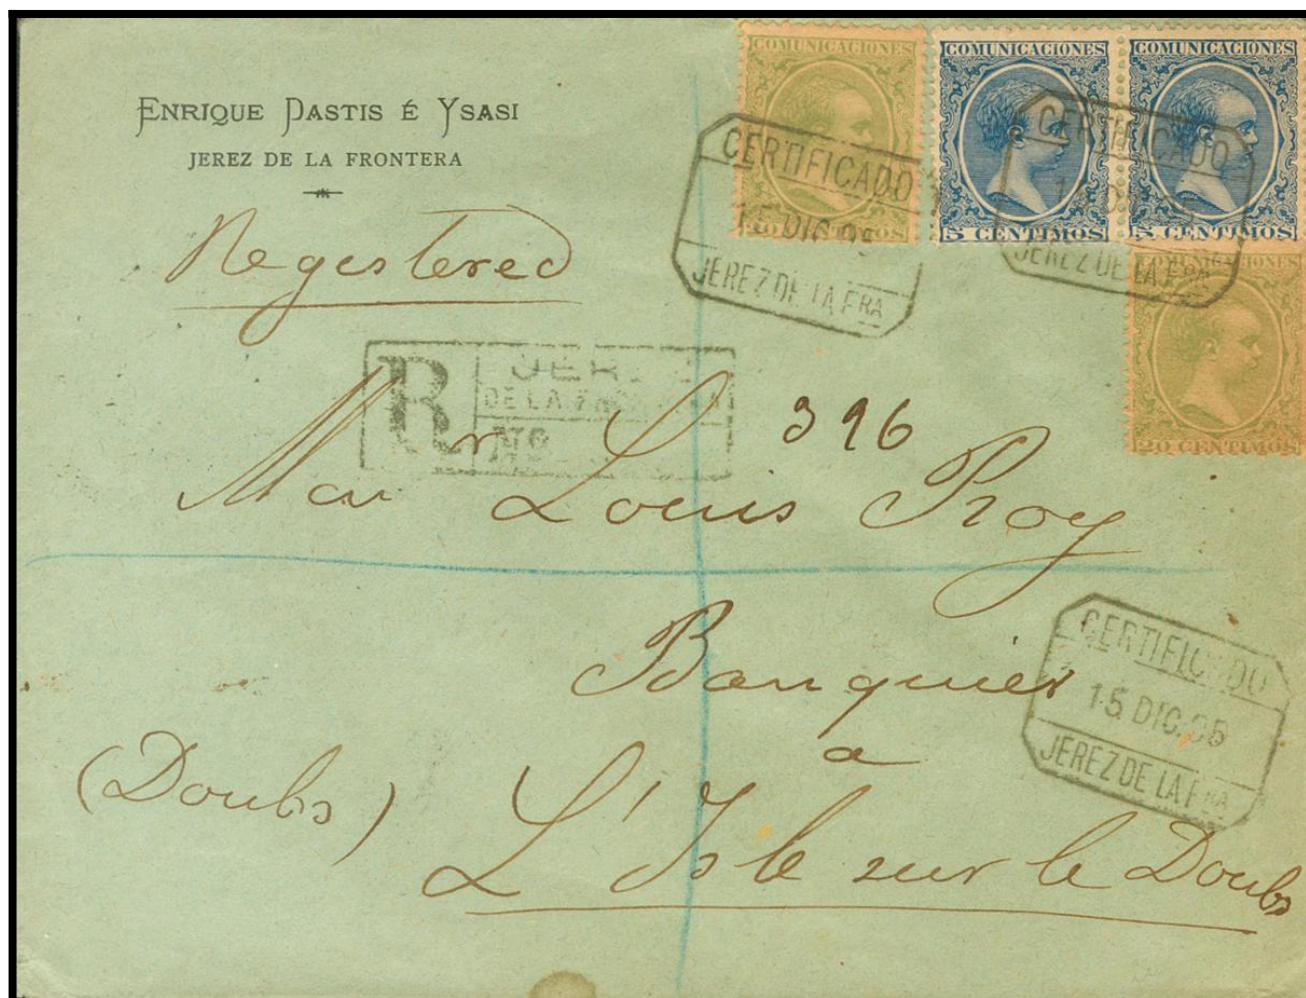 ENRIQUE DASTIS É YSASI
JEREZ DE LA FRONTERA
Registered
COMUNICACIONES
20 CENTIMOS
COMUNICACIONES
5 CENTIMOS
COMUNICACIONES
5 CENTIMOS
COMUNICACIONES
20 CENTIMOS
CERTIFICADO
15 DIC.95
JEREZ DE LA FRA
CERTIFICADO
JEREZ DE LA FRA
R
DE LA
Nº
396
Mr Louis Roy
Banquier
à
(Doubs)
L'Isle sur le Doubs
CERTIFICADO
15 DIC.95
JEREZ DE LA FRA